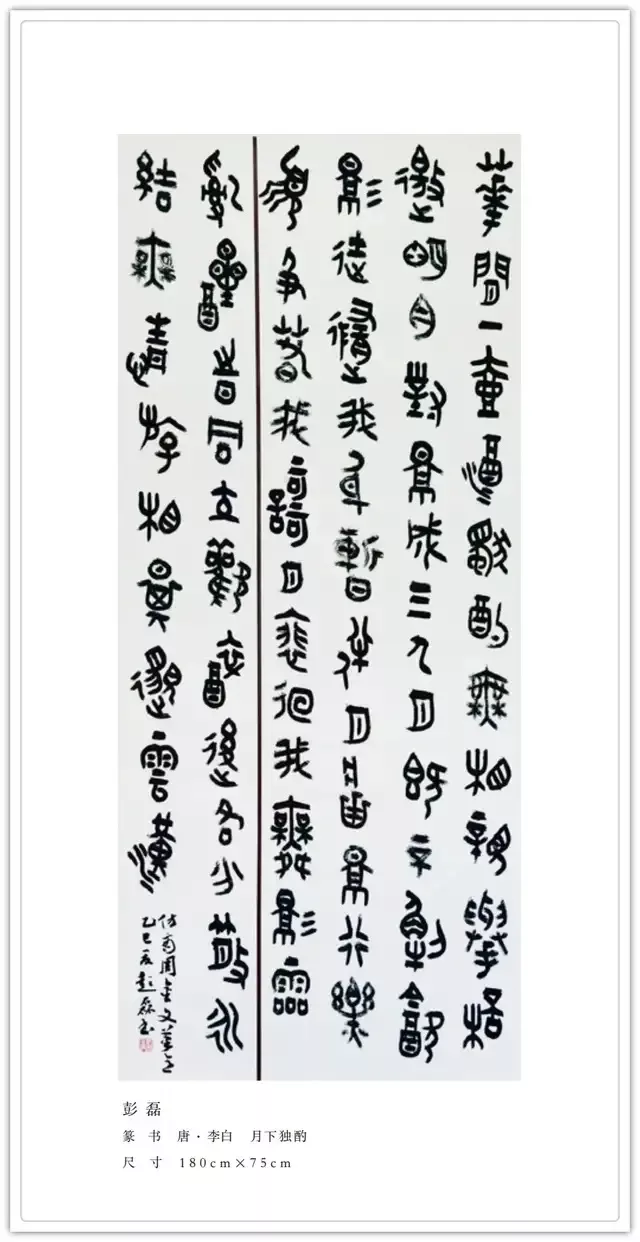 華間一壺酒獨酌無相親舉桮
邀明月對景成三人月既不解飲
影徒隨我身暫伴月將景行樂
須爭萅我謌月裴徊我舞影霝
亂醒時同交歡醉後各分散永
結無情游相期邈雲漢
仿商周金文筆意
乙巳彭磊书
彭磊
篆 书 唐·李白 月下独酌
尺 寸 180cm×75cm